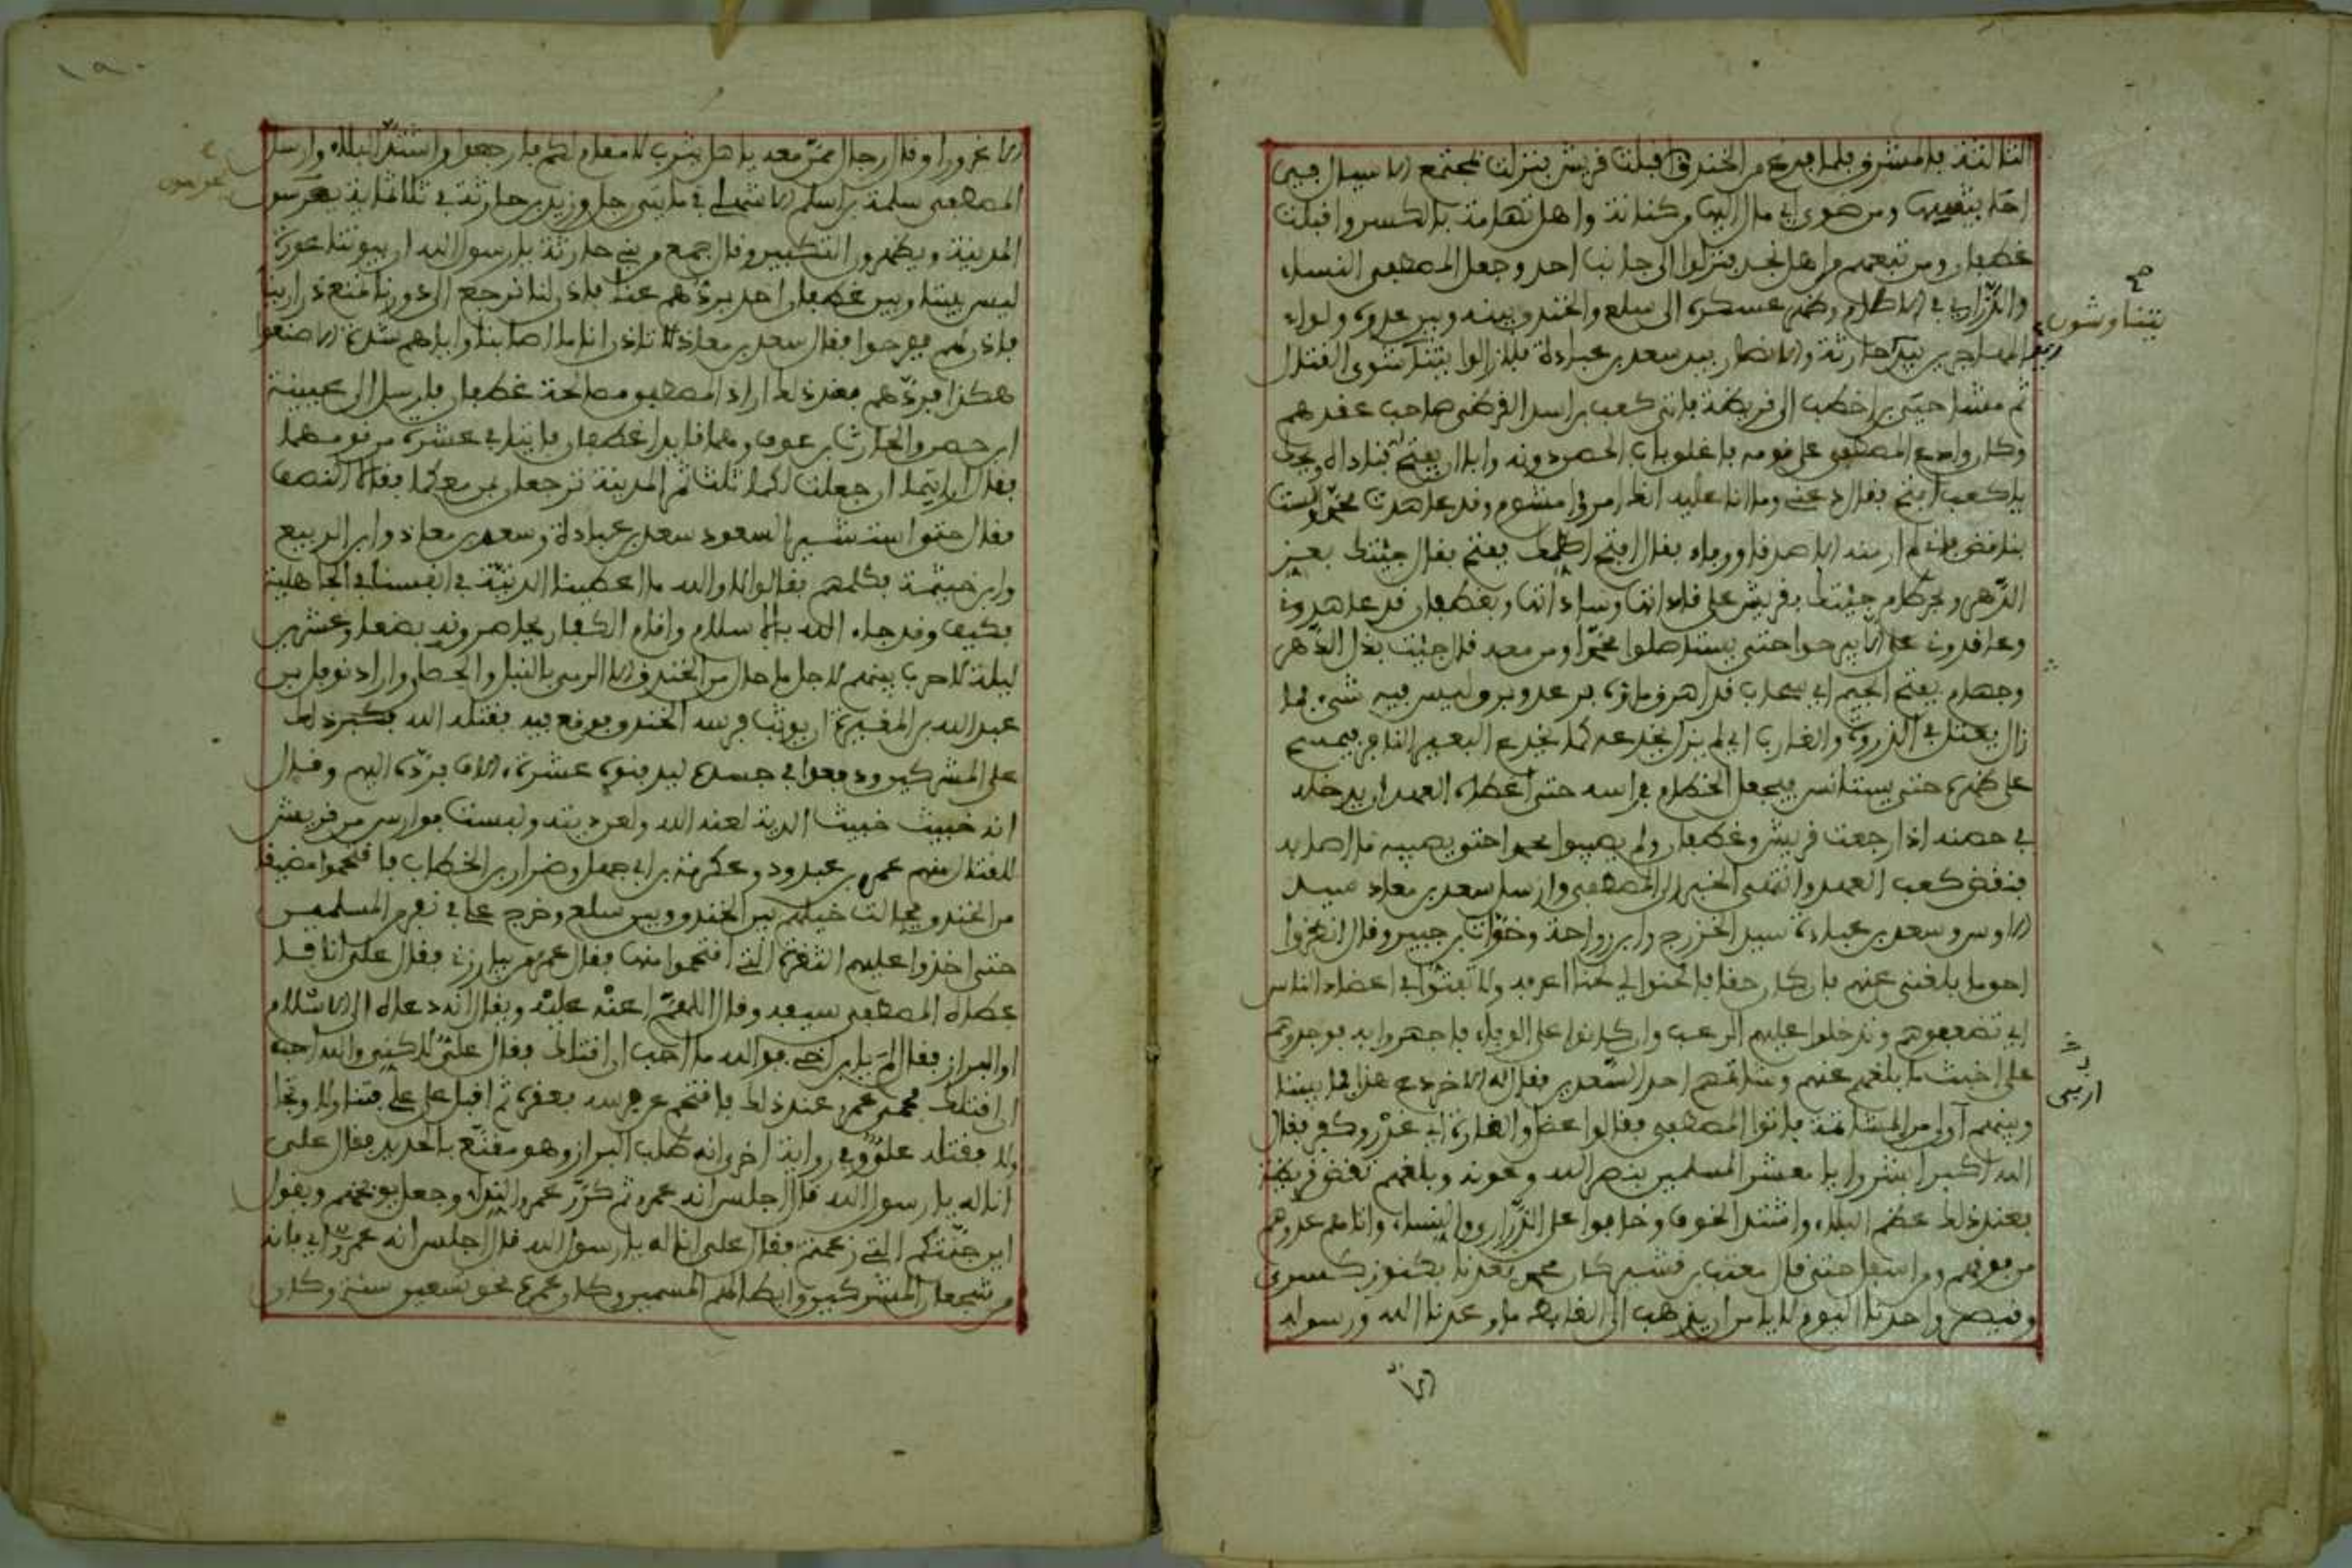 الثالثة بالمشرق فلما فرغ من الخندق اقبلت قريش بنزلت بمجتمع الاسيال في
احابيشها ومن ضوى اليها من كنانة واهل تهامة بالكسر واقبلت
غطفان ومن تبعهم من اهل نجد فنزلوا الى جانب احد وجعل المصطفى النساء
والذراري في الاطام وظهر عسكره الى سلع والخندق بينه وبين عدوه ولواء
المهاجرين بيد حارثة والانصار بيد سعد بن عبادة فلازالوا القتال
ثم مشا حيي بن اخطب الى قريظة فاتى كعب بن اسد القرظي صاحب عقدهم
وكان وادع المصطفى على قومه فاغلق باب الحصن دونه وابى ان يفتح
يا كعب افتح فقال دعني وما انا عليه انك امرؤ مشوم وقد عاهدت محمدا ولست
بناقض فاني لم ار منه الا صدقا ووفاء فقال افتح اكلمك ففتح فقال جئتك بعز
الدهر وبحر طام جئتك بقريش على قادتها وساداتها وبغطفان قد عاهدوني
وعاقدوني على الا يبرحوا حتى يستاصلوا محمدا ومن معه قال جئت بذل الدهر
وجهام بفتح الجيم اي سحاب قد اهرق ماؤه يرعد ويبرق وليس فيه شيء فما
زال يفتل في الذروة والغارب اي لم يزل يخدعه كما يخدع البعير النافر فيمسح
على ظهره حتى يستانس فيجعل الخطام في راسه حتى اعطاه العهد ان يدخله
في حصنه اذا رجعت قريش وغطفان ولم يصيبوا محمدا حتى يصيبه ما اصابه
فنقض كعب العهد وانتهى الخبر الى المصطفى وارسل سعد بن معاذ سيد
الاوس وسعد بن عبادة سيد الخزرج وابن رواحة وخوات بن جبير وقال انظروا
احق ما بلغني عنهم فان كان حقا فالحنوا لي لحنا اعرفه ولا تفتوا في اعضاد الناس
اي تضعفوهم وتدخلوا عليهم الرعب وان كانوا على الوفاء فاجهروا به فوجدوهم
على اخبث ما بلغهم عنهم وشاتمهم احد السعدين فقال له الاخر دع هذا فما بيننا
وبينهم اولى من المشاتمة فاتوا المصطفى فقالوا عضل والقارة اي غدر وكفر فقال
الله اكبر ابشروا يا معشر المسلمين بنصر الله وعونه وبلغهم نقض قريظة
فعند ذلك عظم البلاء واشتد الخوف وخافوا على الذراري والنساء واتاهم عدوهم
من فوقهم ومن اسفل حتى قال معتب بن قشير كان محمد يعدنا بكنوز كسرى
وقيصر واحدنا اليوم لا يامن ان يذهب الى الغايط ما وعدنا الله ورسوله
الا
صح
يتناوشون
ارسى
١٩٠
الا غرورا وقال رجال ممن معه يا اهل يثرب لا مقام لكم فارجعوا واشتد البلاء وارسل
المصطفى سلمة بن اسلم الاشهلي في مايتي رجل وزيد بن حارثة في ثلاثماية يحرسون
المدينة ويظهرون التكبير وقال جمع من بني حارثة يا رسول الله ان بيوتنا عورة
ليس بيننا وبين غطفان احد يردهم عنا فاذن لنا نرجع الى دورنا نمنع ذرارينا
فاذن لهم ففرحوا فقال سعد بن معاذ لا تاذن انا ما اصابنا واياهم شدة الا صنعوا
هكذا فردهم فعند ذلك اراد المصطفى مصالحة غطفان فارسل الى عيينة
ابن حصن والحارث بن عوف وهما قايدا غطفان فاتيا في عشرة من قومهما
فقال ارايتما ان جعلت لكما ثلث ثمر المدينة ترجعا بمن معكما فقالا النصف
فقال حتى استشير السعود سعد بن عبادة وسعد بن معاذ وابن الربيع
وابن خيثمة فكلمهم فقالوا لا والله ما اعطينا الدنية في انفسنا في الجاهلية
فكيف وقد جاء الله بالاسلام واقام الكفار يحاصرونه بضعا وعشرين
ليلة لا حرب بينهم لاجل ما حال من الخندق الا الرمي بالنبل والحصا واراد نوفل بن
عبد الله بن المغيرة ان يوثب فرسه الخندق فوقع فيه فقتله الله فكبر ذلك
على المشركين ودفعوا في جسده ليدفنوه عشرة الاف فرده اليهم وقال
انه خبيث خبيث الدية لعنه الله ولعن ديته ولبست فوارس من قريش
للقتال منهم عمرو بن عبد ود وعكرمة بن ابي جهل وضرار بن الخطاب فاقتحموا مضيقا
من الخندق فجالت خيلهم بين الخندق وبين سلع وخرج علي في نفر من المسلمين
حتى اخذوا عليهم الثغرة التي اقتحموا منها فقال عمرو من يبارزني فقال علي انا
اعطاه المصطفى سيفه وقال اللهم اعنه عليه ويقال انه دعاه الى الاسلام
او البراز فقال لم يا ابن اخي فوالله ما احب ان اقتلك فقال علي لكني والله احب
ان اقتلك فحمى عمرو عند ذلك فاقتحم عن فرسه فعقره ثم اقبل على علي فتناولا وتجا
ولا فقتله علي وفي رواية اخرى انه طلب البراز وهو مقنع بالحديد فقال علي
انا له يا رسول الله قال اجلس انه عمرو ثم كرر عمرو النداء وجعل يوبخهم ويقول
اين جنتكم التي زعمتم فقال علي انا له يا رسول الله قال اجلس انه عمرو اي فانه
من شجعان المشركين وابطالهم المسمين وكان عمره نحو تسعين سنة وكان